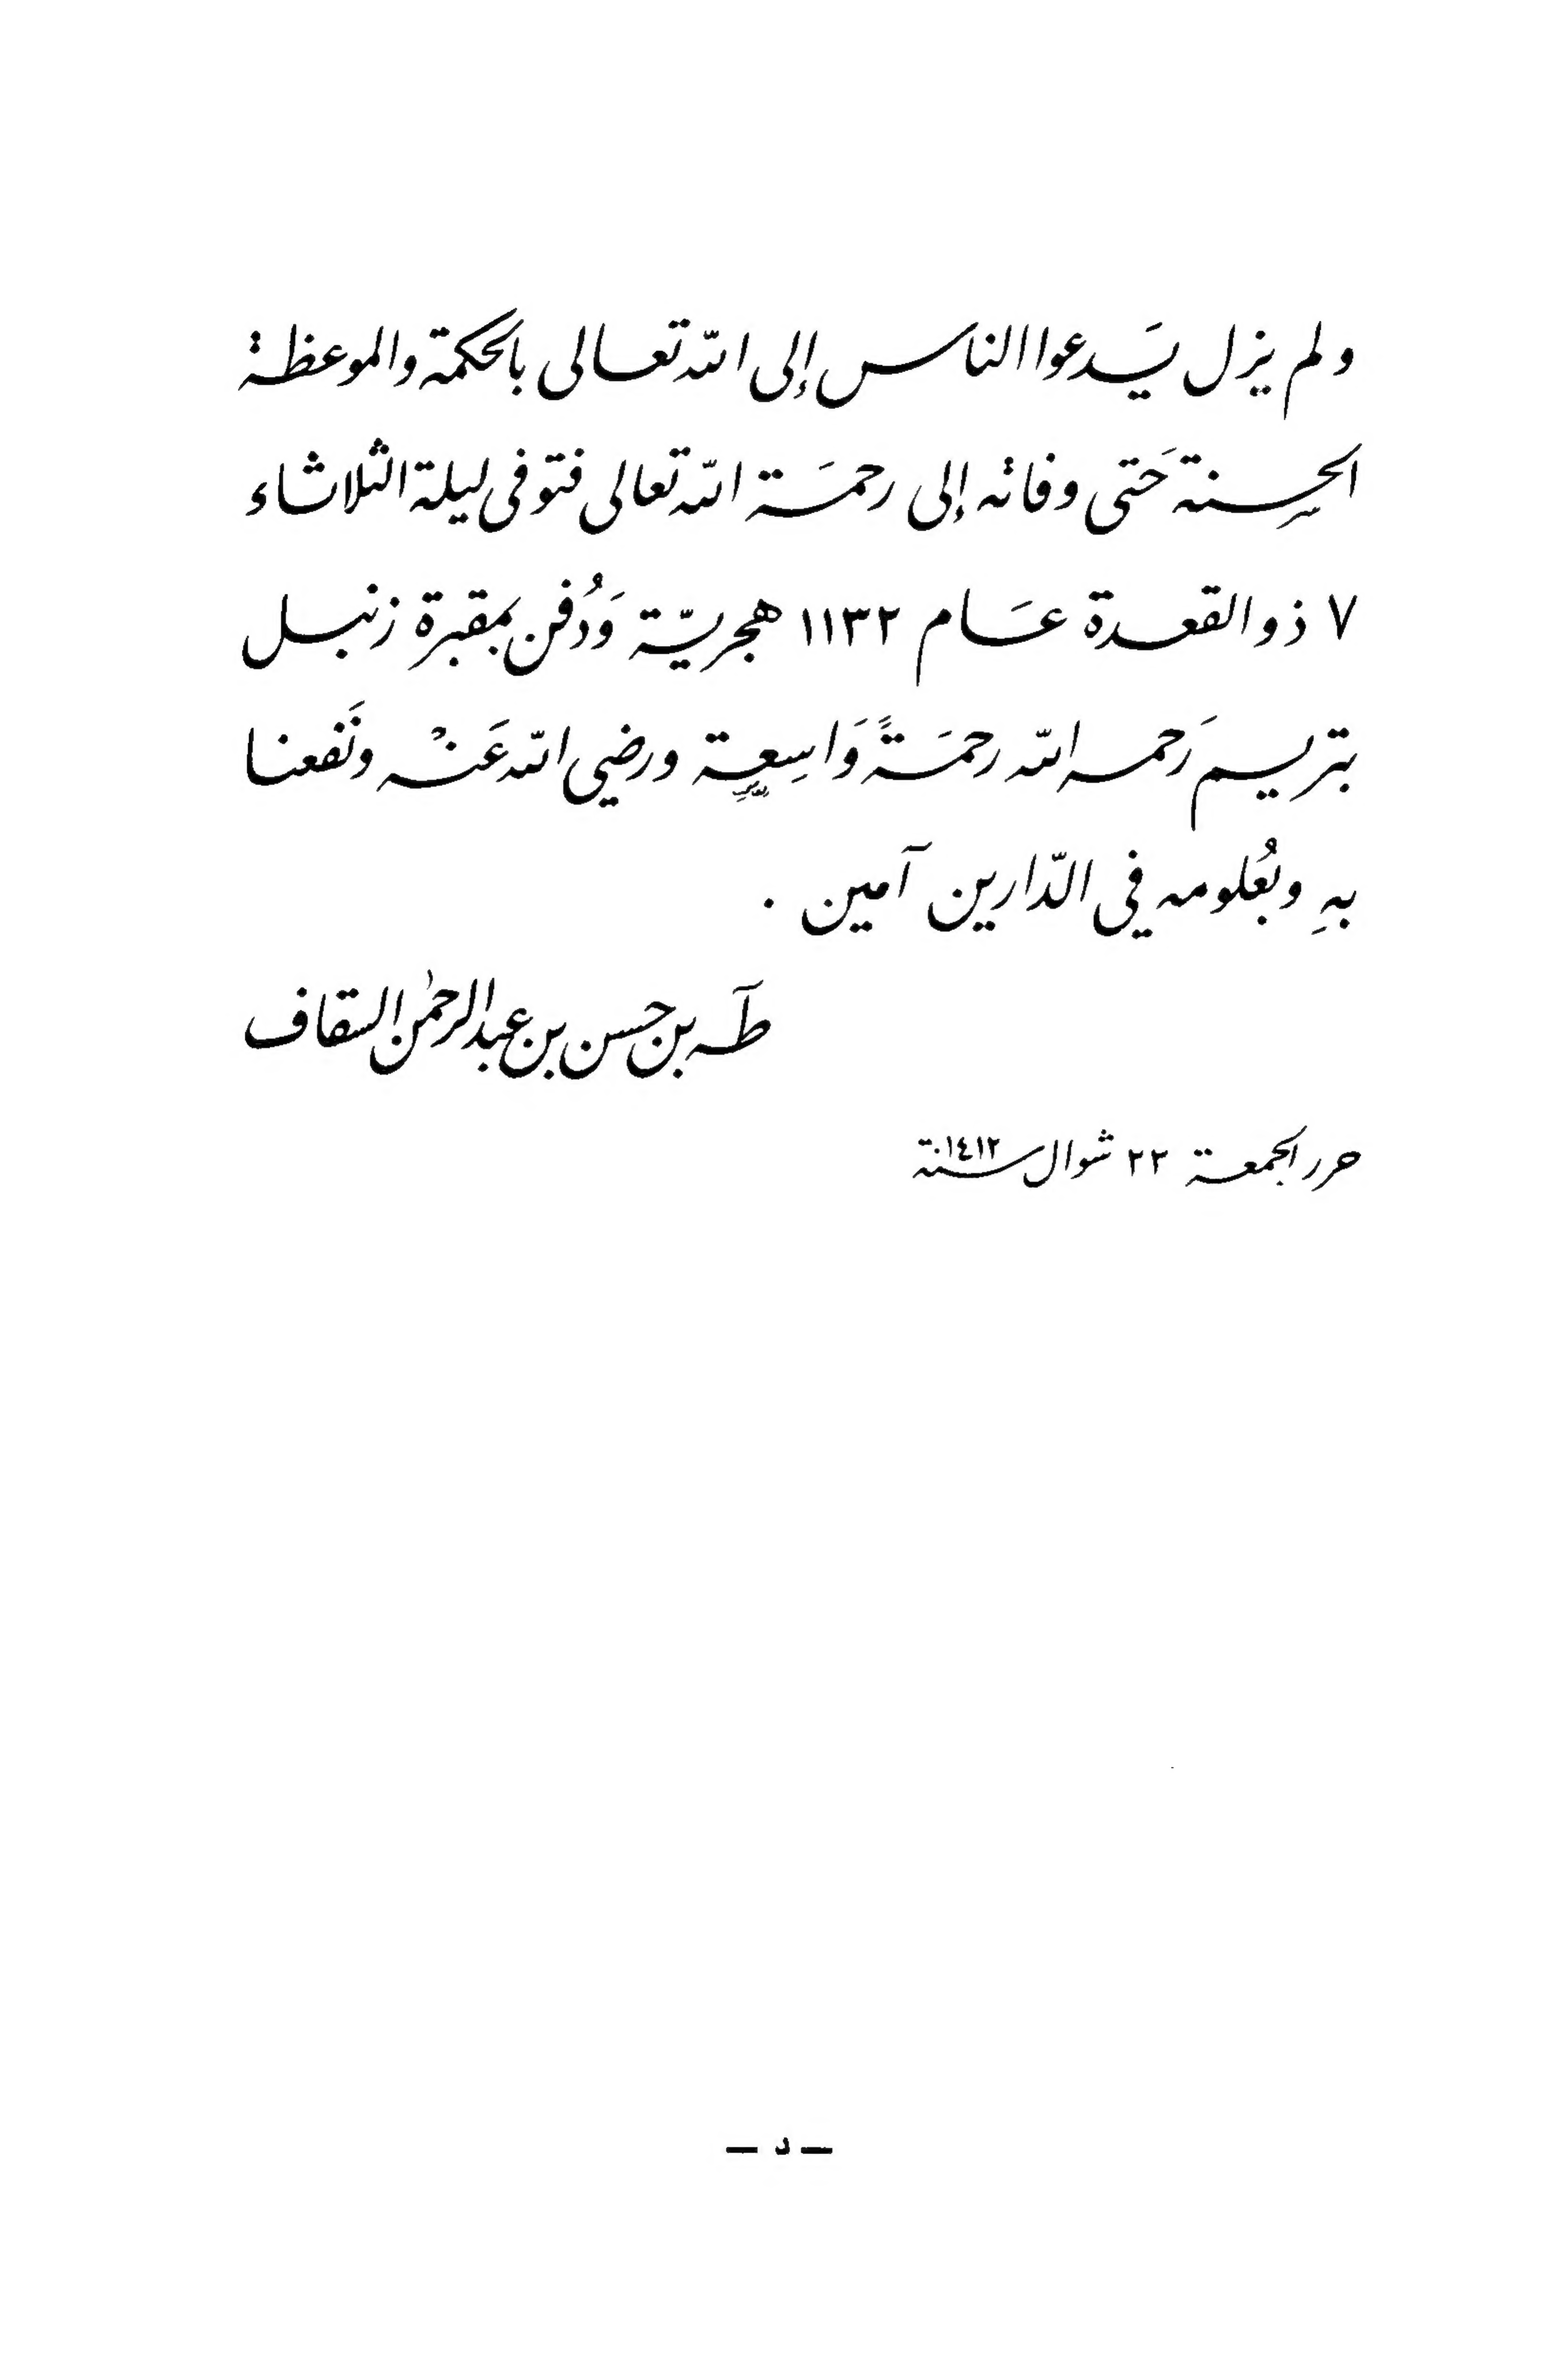 ولم يزل يَدعوا الناس إلى الله تعالى بالحكمة والموعظة
الحسِنة حَتى وفاته إلى رحمَة الله تعالى فتوفى ليلة الثلاثاء
٧ ذو القعدة عَام ١١٣٢ هجريّة وَدُفن بمقبرة زنبل
بتريم رَحمه الله رحمَةً وَاسِعة ورضي الله عَنْه ونَفعنا
بهِ وبعُلومه في الدّارين آمين .
طٓه بن حَسن بن عبد الرحمٰن السقاف
حرر الجمعة ٢٢ شوال سنة ١٤١٢
— د —